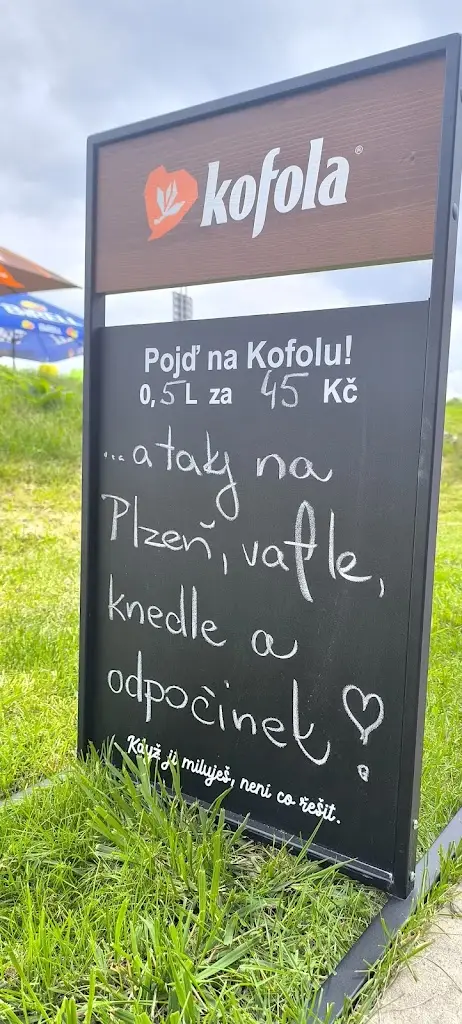 kofola®
Pojď na Kofolu!
0,5L za 45 Kč
...a taky na
Plzeň, vafle,
knedle a
odpočinek!
Když ji miluješ, není co řešit.